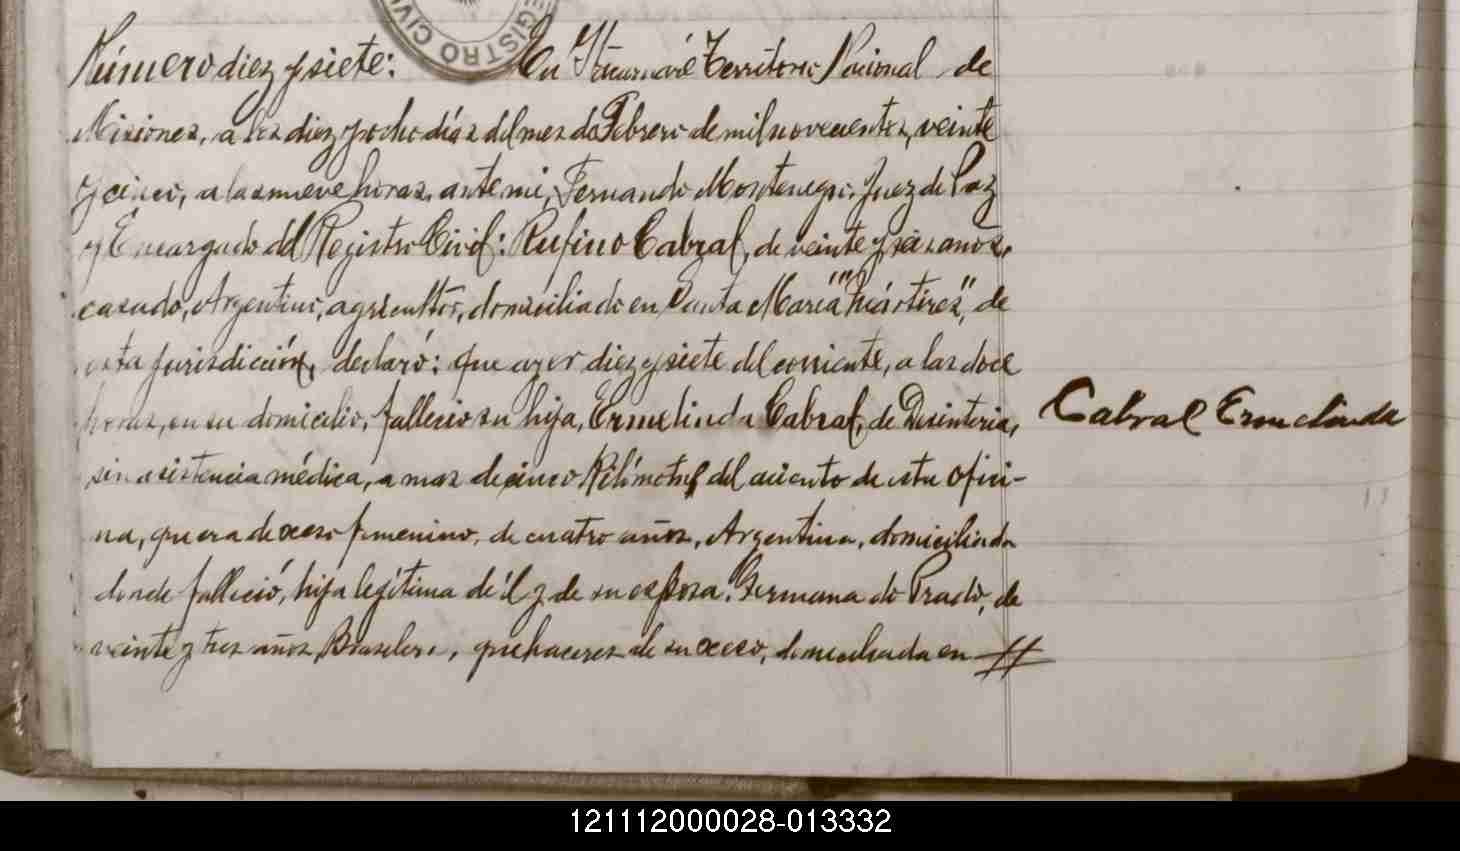 REGISTRO CIVIL
Número diez y siete: En Itacaruaré Territorio Nacional de
Misiones, a los diez y ocho días del mes de Febrero de mil novecientos, veinte
y cinco, a las nueve horas, ante mi, Fernando Montenegro, Juez de Paz
y Encargado del Registro Civil: Rufino Cabral, de veinte y seis años,
casado, Argentino, agricultor, domiciliado en Santa María "Mártires", de
esta jurisdicción, declaró: que ayer diez y siete del corriente, a las doce
horas, en su domicilio, fallecio su hija, Ermelinda Cabral, de Desinteria,
sin asistencia médica, a mas de cinco Kilómetros del aciento de esta ofici-
na, que era de sexo femenino, de cuatro años, Argentina, domiciliada
donde falleció, hija legítima de él y de su esposa, Germana do Prado, de
veinte y tres años, Brasilera, quehaceres de su sexo, domiciliada en //
Cabral Ermelinda
121112000028-013332